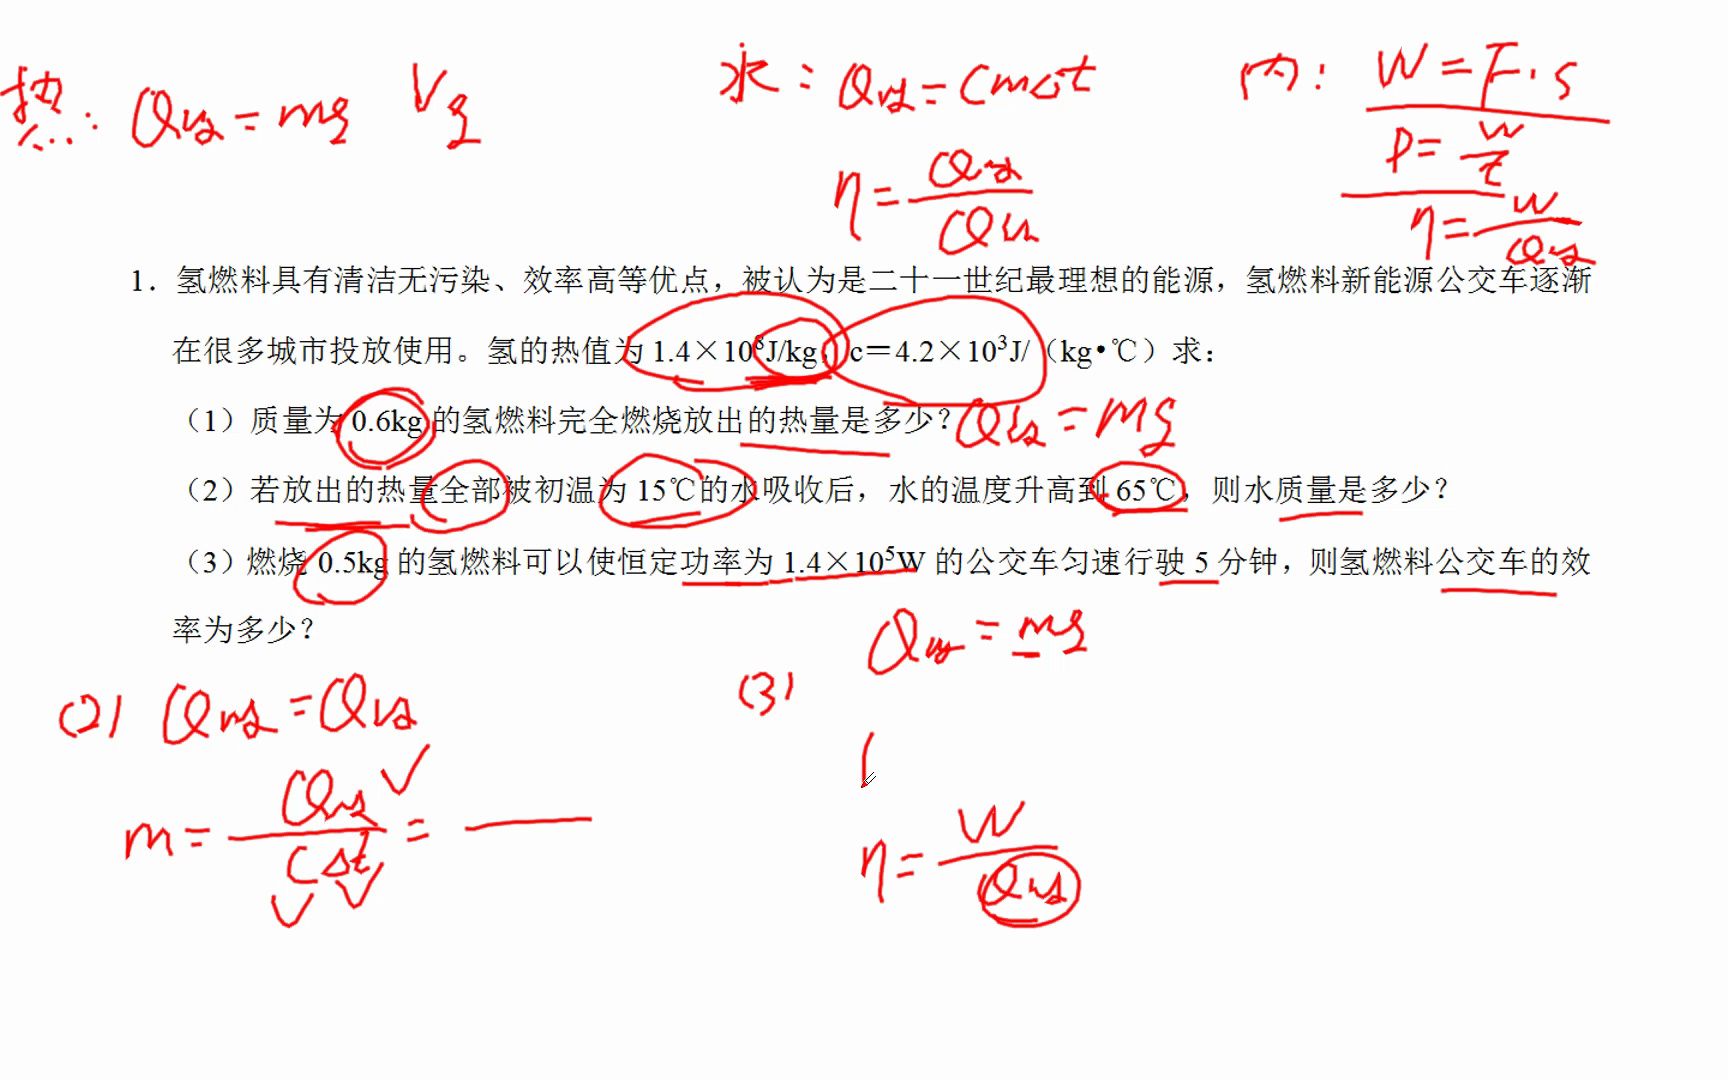 热: Q放=mq Vq
水: Q吸=cmΔt
η=Q吸/Q放
内: W=F·s
P=W/t
η=W/Q放
1．氢燃料具有清洁无污染、效率高等优点，被认为是二十一世纪最理想的能源，氢燃料新能源公交车逐渐
在很多城市投放使用。氢的热值为 1.4×10⁸J/kg，c＝4.2×10³J/（kg•℃）求：
（1）质量为 0.6kg 的氢燃料完全燃烧放出的热量是多少？Q放=mq
（2）若放出的热量全部被初温为 15℃的水吸收后，水的温度升高到 65℃，则水质量是多少？
（3）燃烧 0.5kg 的氢燃料可以使恒定功率为 1.4×10⁵W 的公交车匀速行驶 5 分钟，则氢燃料公交车的效
率为多少？
(2) Q吸=Q放
m=Q吸/cΔt=
(3) Q放=mq
η=W/Q放